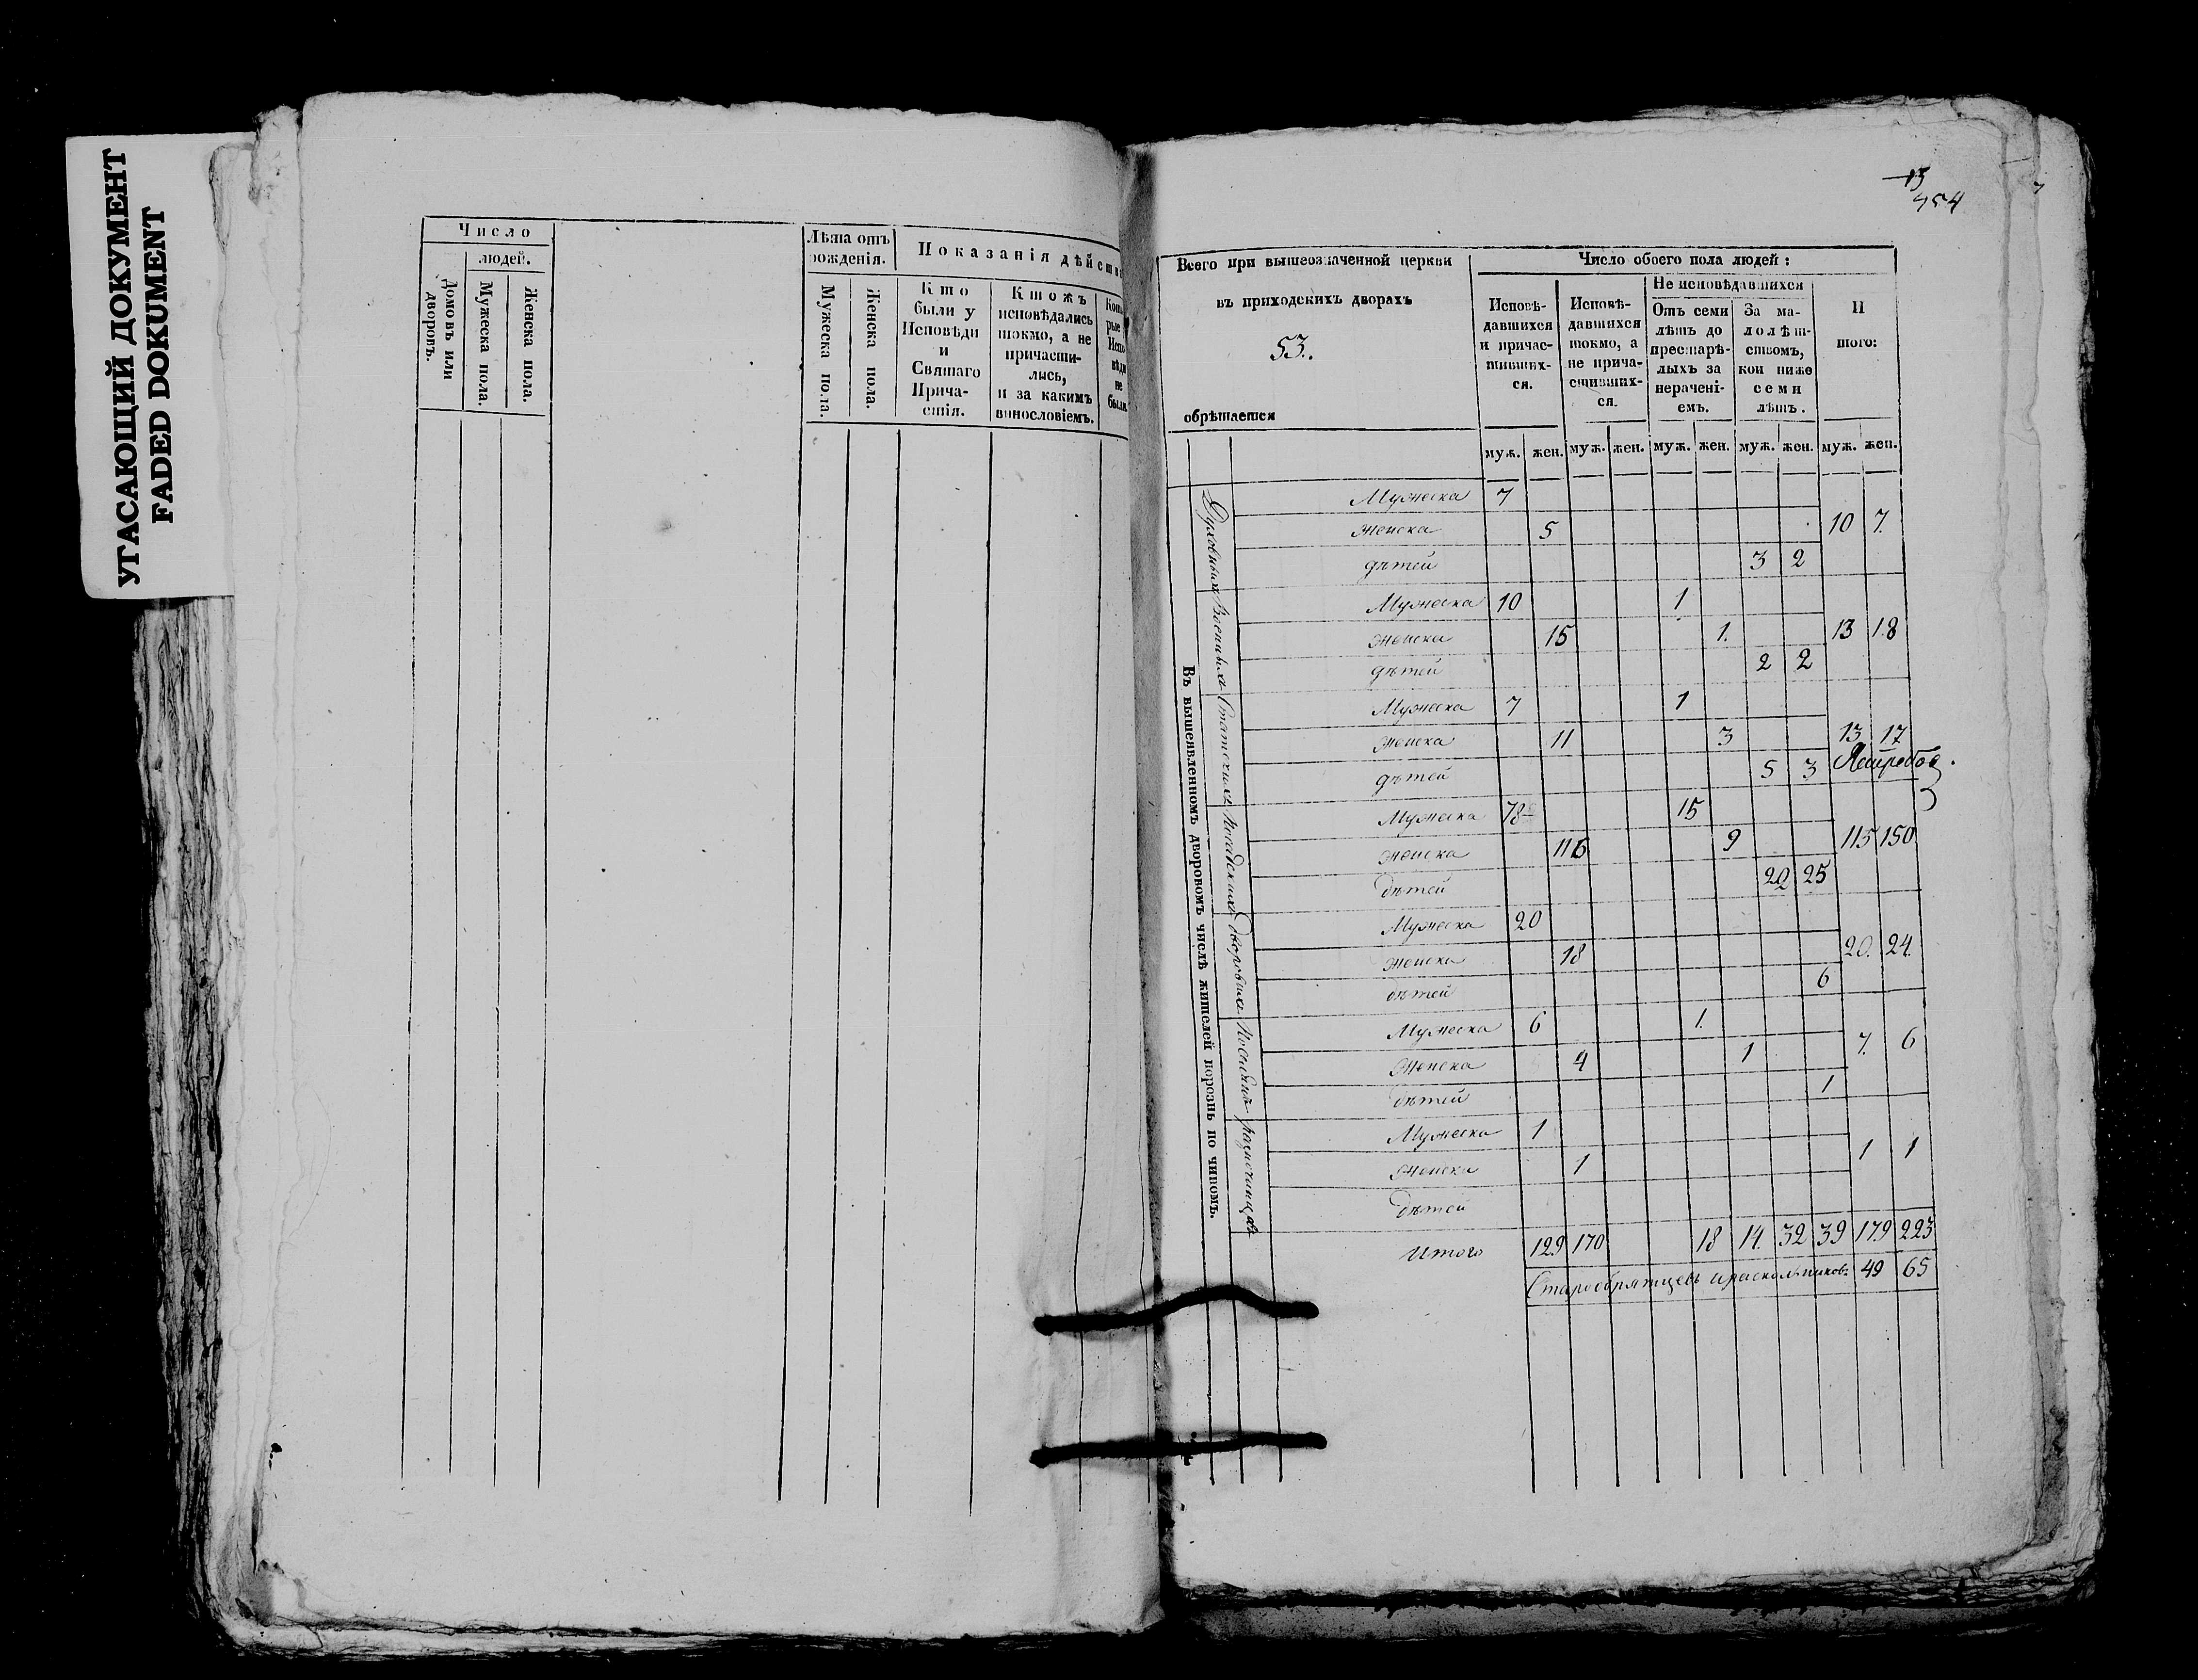 УГАСАЮЩИЙ ДОКУМЕНТ
FADED DOKUMENT
Число
людей.
Домовъ или дворовъ.
Мужеска пола.
Женска пола.
Лѣта отъ рожденія.
Мужеска пола.
Женска пола.
Показанія дѣйств
Кто были у Исповѣди и Святаго Прича-стія.
Ктожъ исповѣдались токмо, а не причасти-лись, и за какимъ винословіемъ.
Кото-рые Испо-вѣди не были.
13
454
Всего при вышеозначенной церкви
въ приходскихъ дворахъ
53.
обрѣтается
Число обоего пола людей:
Исповѣ-давшихся и причас-тивших-ся.
Исповѣ-давшихся токмо, а не прича-стивших-ся.
Не исповѣдавшихся
Отъ семи лѣтъ до престарѣ-лыхъ за нераченi-емъ.
За ма-лолѣт-ствомъ, кои ниже семи лѣтъ.
И того:
муж. жен. муж. жен. муж. жен. муж. жен. муж. жен.
Въ вышеявленномъ дворовомъ числѣ жителей порознь по чиномъ.
Духовныхъ
Мужеска 7
Женска 5 10 7.
дѣтей 3 2
Военныхъ
Мужеска 10 1
Женска 15 1. 13 18
дѣтей 2 2
Статскихъ
Мужеска 7 1
Женска 11 3 13 17
дѣтей 5 3
Посадскихъ
Мужеска 78 15
Женска 116 9 115 150
дѣтей 22 25
Дворовыхъ
Мужеска 20
Женска 18 20. 24.
дѣтей 6
Мужеска 6 1.
Женска 4 1 7. 6
дѣтей 1
Мужеска 1
Женска 1 1 1
дѣтей
Итого 129 170 18 14. 32 39 179 223
Старообрятцевъ и раскольниковъ 49 65